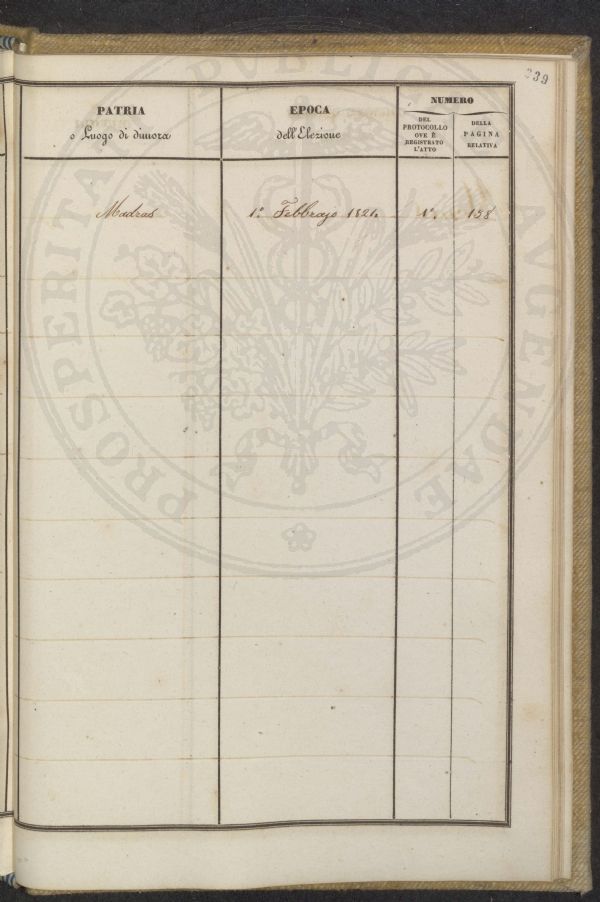 239
PATRIA
o Luogo di dimora
EPOCA
dell'Elezione
NUMERO
DEL
PROTOCOLLO
OVE È
REGISTRATO
L'ATTO
DELLA
PAGINA
RELATIVA
Madras 1.° Febbrajo 1821. 1°. 158
PROSPERITATI PUBLICAE AUGENDAE